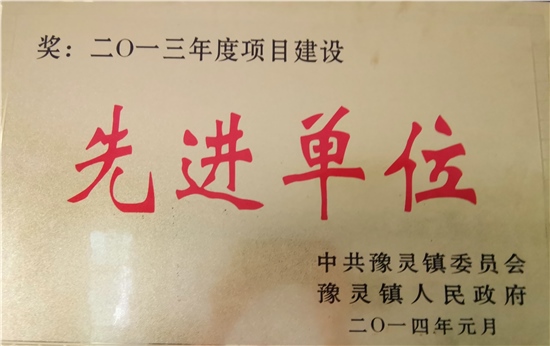 奖：二〇一三年度项目建设
先进单位
中共豫灵镇委员会
豫灵镇人民政府
二〇一四年元月